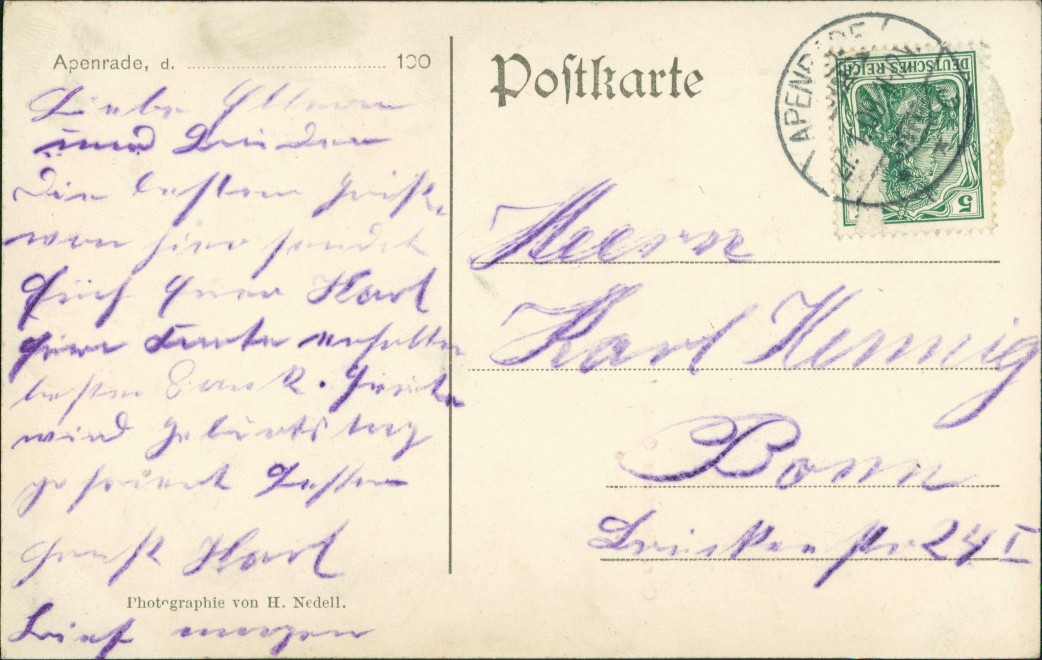 Apenrade, d. 190
Liebe Eltern
und Bruder
Die besten Grüße
von hier sendet
Euch Euer Karl
Eure Karte erhalten
besten Dank. Heute
wird Geburtstag
gefeiert Besten
Gruß Karl
Photographie von H. Nedell.
Brief morgen
Postkarte
APENRADE
DEUTSCHES REICH
5
Herrn
Karl Hennig
Bonn
Brückenstr 24 I